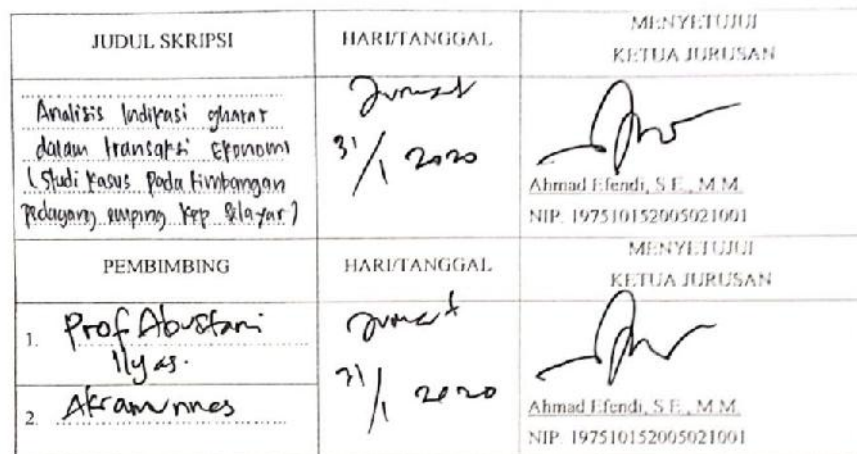 JUDUL SKRIPSI
HARI/TANGGAL
MENYETUJUI
KETUA JURUSAN
Analisis Indikasi gharar
dalam transaksi Ekonomi
(Studi Kasus pada timbangan
pedagang emping Kep Selayar)
Jumat
31/1 2020
Ahmad Efendi, S.E., M.M.
NIP. 197510152005021001
PEMBIMBING
HARI/TANGGAL
MENYETUJUI
KETUA JURUSAN
1. Prof Abustani
Ilyas.
2. Akramunnas
Jumat
31/1 2020
Ahmad Efendi, S.E., M.M.
NIP. 197510152005021001